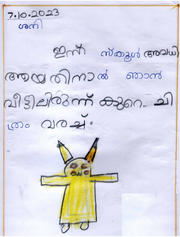 7.10.2023
ശനി
ഇന്ന് സ്കൂൾ അവധി
ആയതിനാൽ ഞാൻ
വീട്ടിലിരുന്ന് കുറെ ചി
ത്രം വരച്ചു.